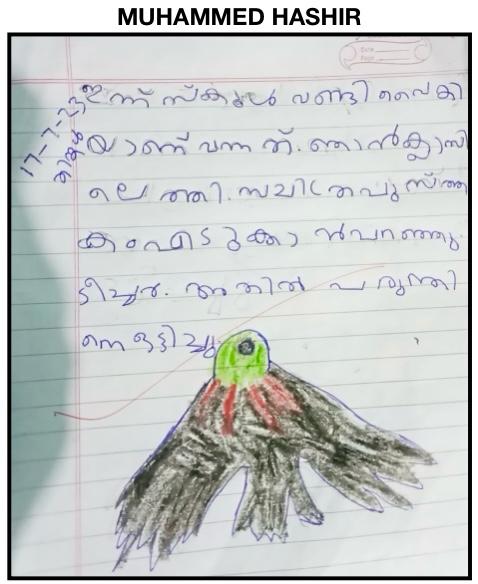 MUHAMMED HASHIR
Date
Page
17-7-23
തിങ്കൾ
ഇന്ന് സ്കൂൾ വണ്ടി വൈകി
യാണ് വന്നത്. ഞാൻ ക്ലാസി
ലെത്തി. സചിത്രപുസ്ത
കം എടുക്കാൻ പറഞ്ഞു
ടീച്ചർ. അതിൽ പരുന്തി
നെ ഒട്ടിച്ചു